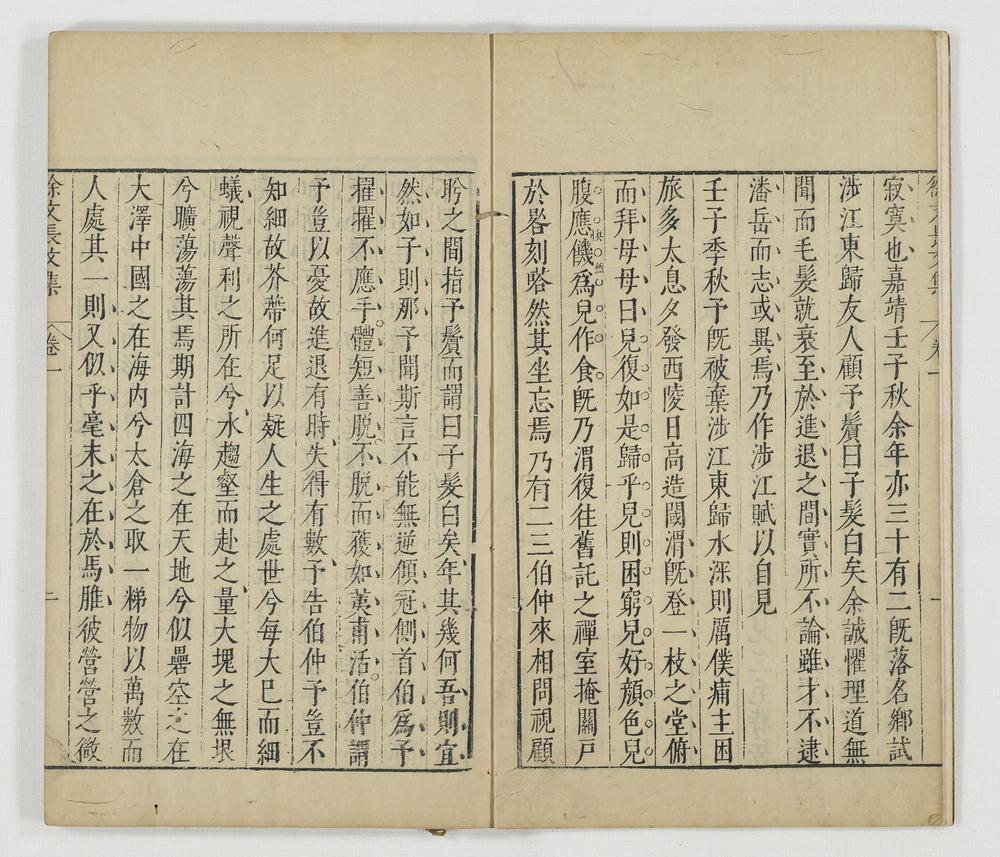 寂寞也嘉靖壬子秋余年亦三十有二旣落名鄉試
涉江東歸友人顧予鬢曰子髮白矣余誠懼理道無
聞而毛髮就衰至於進退之間實所不論雖才不逮
潘岳而志或異焉乃作涉江賦以自見
壬子季秋予旣被棄涉江東歸水深則厲僕痡主困
旅多太息夕發西陵日高造閾渭旣登一枝之堂俯
而拜母母曰兒復如是歸乎兒則困窮兒好顏色兒
腹應饑爲兒作食旣乃渭復往舊託之禪室掩關戶
悽然
於晷刻嗒然其坐忘焉乃有二三伯仲來相問視顧
盻之間指予鬢而謂曰子髮白矣年其幾何吾則宜
然如子則那予聞斯言不能無逆傾冠側首伯爲予
擢擢不應手體短善脫不脫而穫如荑甫活伯仲謂
予豈以憂故進退有時失得有數予告伯仲予豈不
知細故芥蔕何足以疑人生之處世兮每大巳而細
蟻視聲利之所在兮水趨壑而赴之量大塊之無垠
兮曠蕩蕩其焉期計四海之在天地兮似礨空之在
大澤中國之在海內兮太倉之取一稊物以萬數而
人處其一則又似乎毫末之在於馬膗彼營營之微
徐文長文集
卷一
二